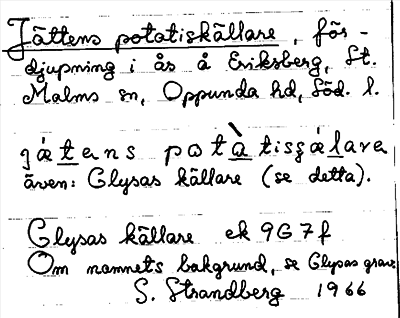 Jättens potatiskällare, för-
djupning i ås å Eriksberg, St.
Malms sn, Oppunda hd, Söd. l.
jætens potàtisɕælare
även: Glysas källare (se detta).
Glysas källare ek 9G7f
Om namnets bakgrund, se Glysas grav
S. Strandberg 1966